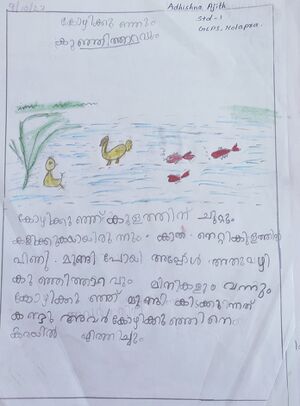 9/10/23
Adhishna Ajith
Std - 1
GLPS, Holapra.
കോഴിക്കുഞ്ഞും
കുഞ്ഞിത്താറാവും
കോഴിക്കുഞ്ഞ് കുളത്തിന് ചുറ്റും
കളിക്കുകയായിരുന്നും. കാൽ തെറ്റികുളത്തിൽ
വീണു. മുങ്ങി പോയി അപ്പോൾ അതുവഴി
കുഞ്ഞിത്താറാവും മീനികളും വന്നും
കോഴിക്കുഞ്ഞ് മുങ്ങി കിടക്കുന്നത്
കണ്ടു അവർ കോഴിക്കുഞ്ഞിനെ
കരയിൽ എത്തിച്ചും